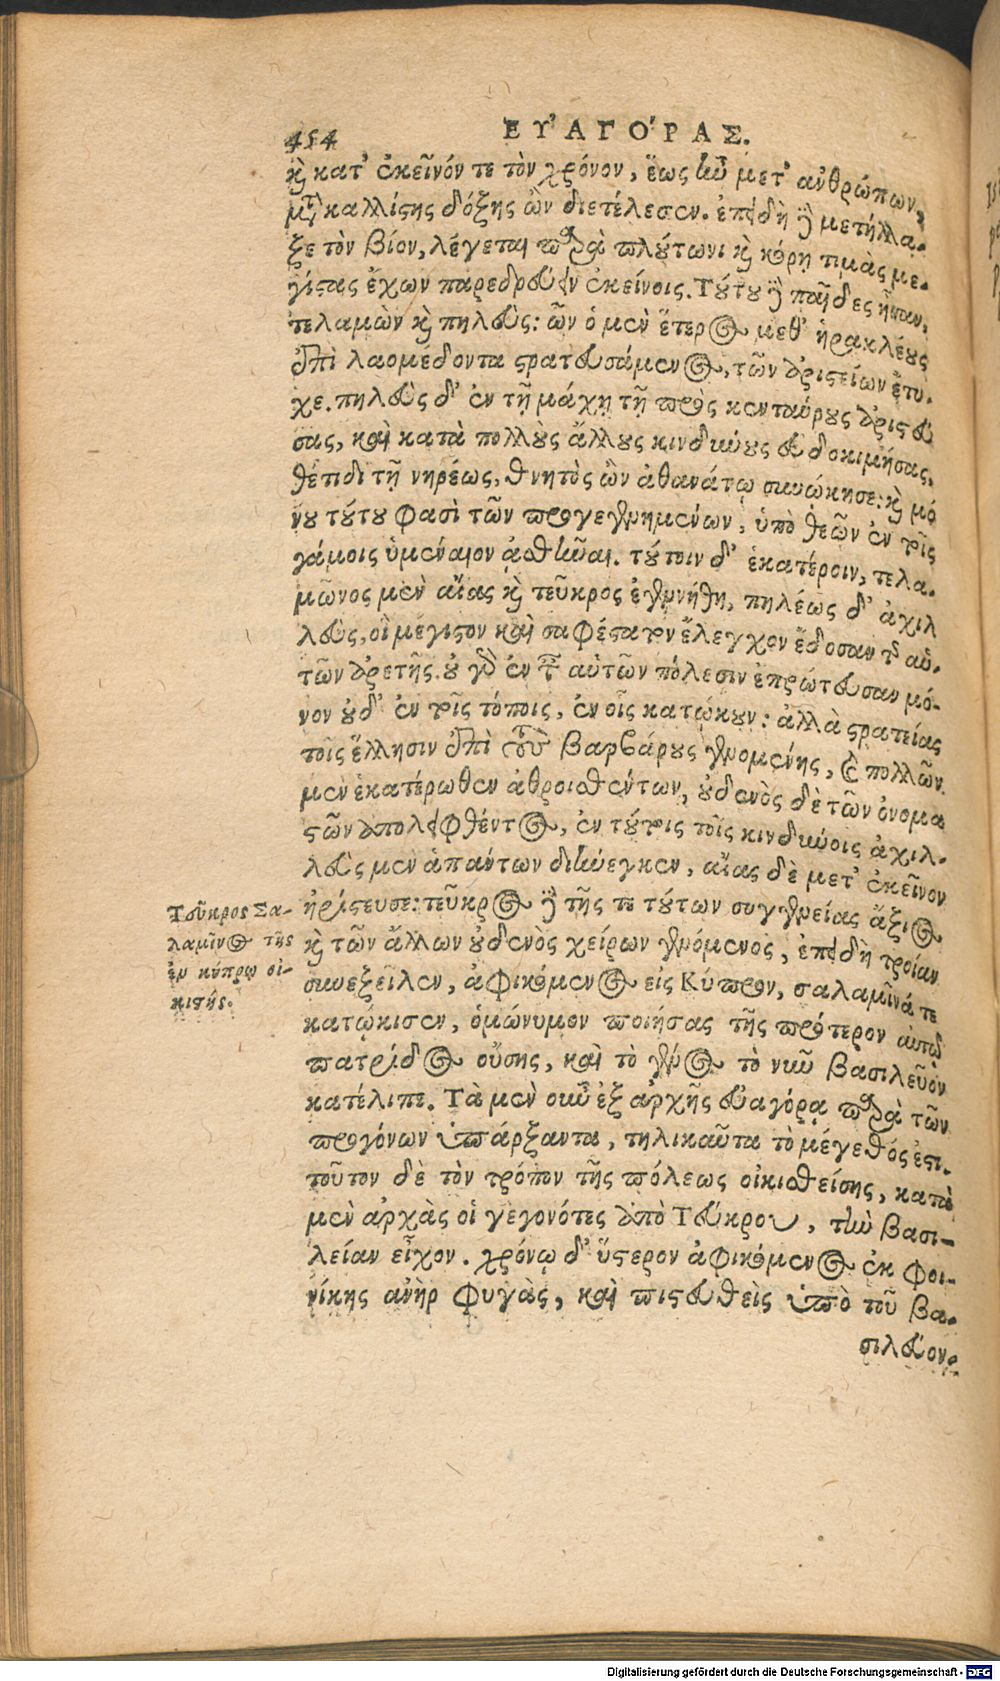 454 ΕΥ̓ΑΓΟ´ΡΑΣ.
καὶ κατ' ἐκεῖνόν τε τὸν χρόνον, ἕως ἦν μετ' ἀνθρώπων,
μετὰ καλλίστης δόξης ὢν διετέλεσεν. ἐπειδὴ δὲ μετήλλα-
ξε τὸν βίον, λέγεται παρὰ πλούτωνι καὶ κόρῃ τιμὰς με-
γίστας ἔχων παρεδρεύειν ἐκείνοις. Τούτου δὲ παῖδες ἦσαν,
τελαμὼν καὶ πηλεύς: ὧν ὁ μὲν ἕτερος μεθ' ἡρακλέους
ἐπὶ λαομέδοντα στρατευσάμενος, τῶν ἀριστείων ἔτυ-
χε. πηλεὺς δ' ἐν τῇ μάχῃ τῇ πρὸς κενταύρους ἀριστεύ
σας, καὶ κατὰ πολλοὺς ἄλλους κινδύνους εὐδοκιμήσας,
θέτιδι τῇ νηρέως, θνητὸς ὢν ἀθανάτῳ συνῴκησε: καὶ μό
νου τούτου φασὶ τῶν προγεγενημένων, ὑπὸ θεῶν ἐν τοῖς
γάμοις ὑμέναιον ᾀσθῆναι. τούτοιν δ' ἑκατέροιν, τελα-
μῶνος μὲν αἴας καὶ τεῦκρος ἐγεννήθη, πηλέως δ' ἀχιλ
λεὺς, οἳ μέγιστον καὶ σαφέστατον ἔλεγχον ἔδοσαν τῆς αὑ-
τῶν ἀρετῆς. οὐ γὰρ ἐν ταῖς αὑτῶν πόλεσιν ἐπρώτευσαν μό-
νον οὐδ' ἐν τοῖς τόποις, ἐν οἷς κατῴκουν: ἀλλὰ στρατείας
τοῖς ἕλλησιν ἐπὶ τοὺς βαρβάρους γενομένης, καὶ πολλῶν
μὲν ἑκατέρωθεν ἀθροισθέντων, οὐδενὸς δὲ τῶν ὀνομα
στῶν ἀπολειφθέντος, ἐν τούτοις τοῖς κινδύνοις ἀχιλ-
λεὺς μὲν ἁπάντων διήνεγκεν, αἴας δὲ μετ' ἐκεῖνον
ἠρίστευσε: τεῦκρος δὲ τῆς τε τούτων συγγενείας ἄξιος
καὶ τῶν ἄλλων οὐδενὸς χείρων γενόμενος, ἐπειδὴ τροίαν
συνεξεῖλεν, ἀφικόμενος εἰς Κύπρον, σαλαμῖνά τε
κατῴκισεν, ὁμώνυμον ποιήσας τῆς πρότερον αὐτῷ
πατρίδος οὔσης, καὶ τὸ γένος τὸ νῦν βασιλεῦον
κατέλιπε. Τὰ μὲν οὖν ἐξ ἀρχῆς εὐαγόρᾳ παρὰ τῶν
προγόνων ὑπάρξαντα, τηλικαῦτα τὸ μέγεθός ἐστι.
τοῦτον δὲ τὸν τρόπον τῆς πόλεως οἰκισθείσης, κατὰ
μὲν ἀρχὰς οἱ γεγονότες ἀπὸ Τεύκρου, τὴν βασι-
λείαν εἶχον. χρόνῳ δ' ὕστερον ἀφικόμενος ἐκ φοι-
νίκης ἀνὴρ φυγὰς, καὶ πιστευθεὶς ὑπὸ τοῦ βα-
σιλεύον-
Τεῦκρος Σα-
λαμῖνος τῆς
ἐν κύπρῳ οἰ-
κιστής.
Digitalisierung gefördert durch die Deutsche Forschungsgemeinschaft - DFG